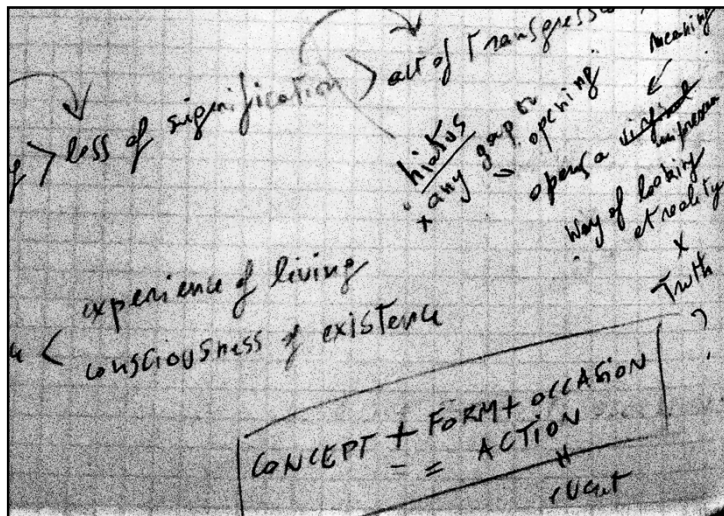 loss of signification > act of transgression
meaning
hiatus
× any gap or
opening
opens a
way of looking
at reality
×
Truth
?
experience of living
< consciousness of existence
CONCEPT + FORM + OCCASION
= ACTION
event